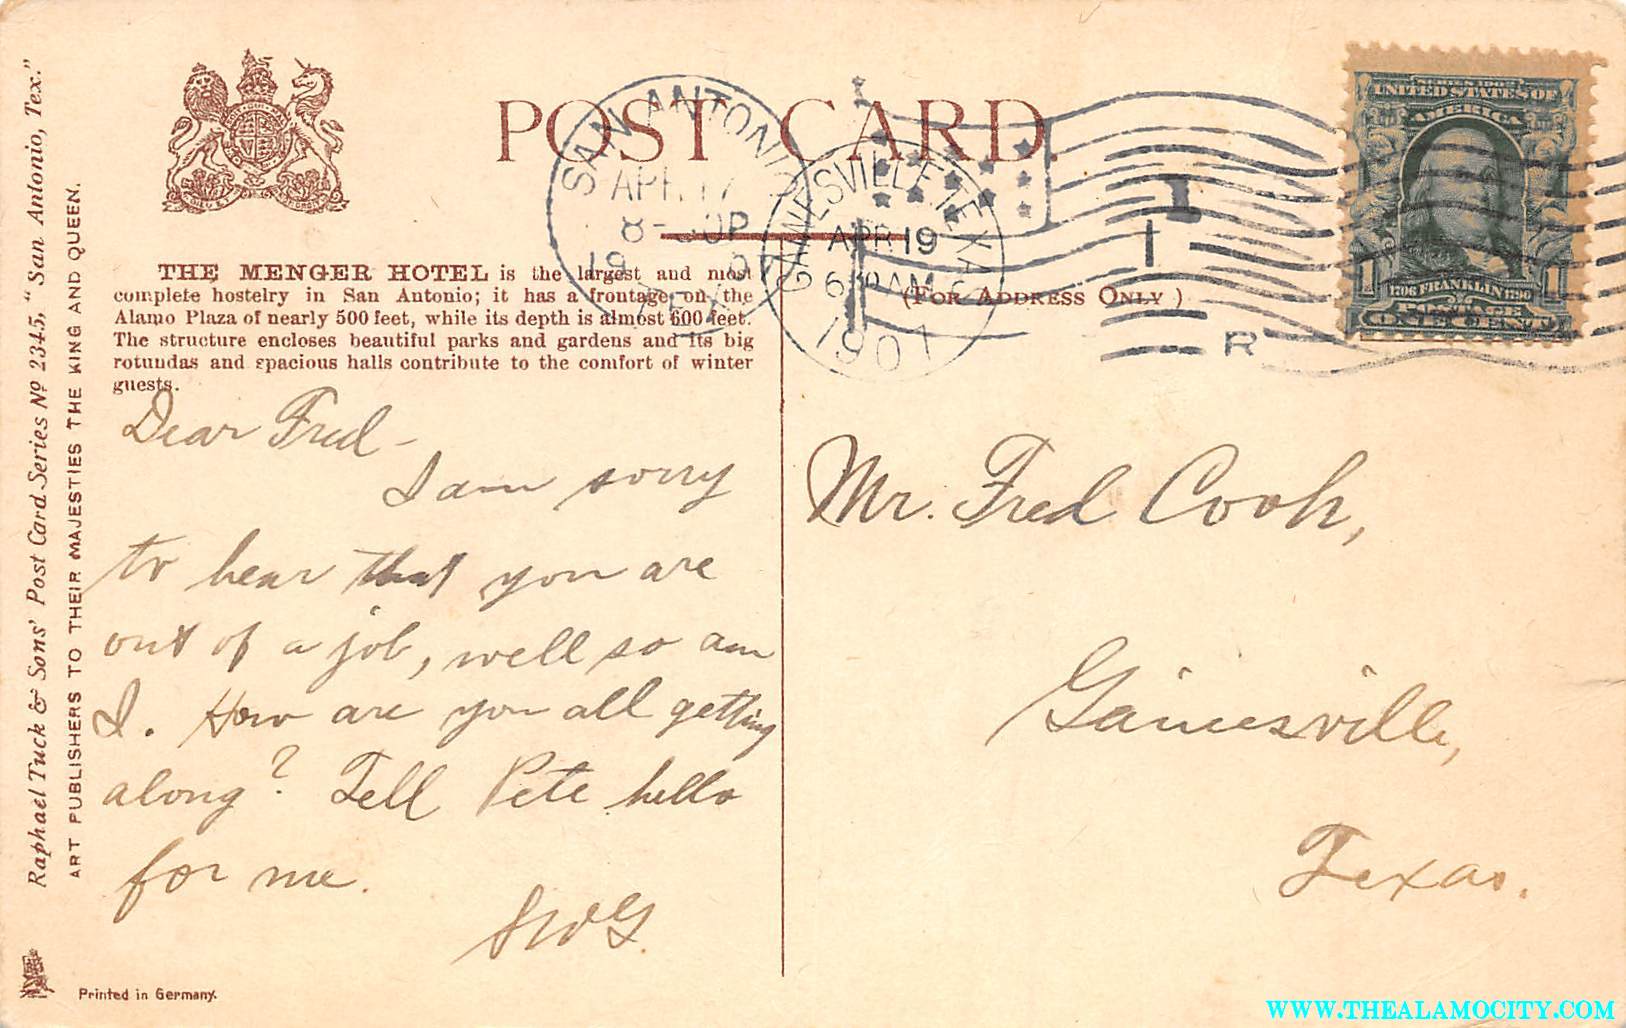 Raphael Tuck & Sons' Post Card Series No 2345, "San Antonio, Tex."
ART PUBLISHERS TO THEIR MAJESTIES THE KING AND QUEEN.
POST CARD.
SAN ANTONIO
APR 17
8-30P
1907
TEX.
GAINESVILLE, TEXAS
APR 19
6 AM
1907
1
R
SERIES 1902
UNITED STATES OF
AMERICA
1 1
1706 FRANKLIN 1790
ONE CENT
THE MENGER HOTEL is the largest and most
complete hostelry in San Antonio; it has a frontage on the
Alamo Plaza of nearly 500 feet, while its depth is almost 600 feet.
The structure encloses beautiful parks and gardens and its big
rotundas and spacious halls contribute to the comfort of winter
guests.
(FOR ADDRESS ONLY)
Dear Fred -
I am sorry
to hear that you are
out of a job, well so am
I. How are you all getting
along? Tell Pete hello
for me.
Mr. Fred Cook,
Gainesville,
Texas.
Printed in Germany.
WWW.THEALAMOCITY.COM